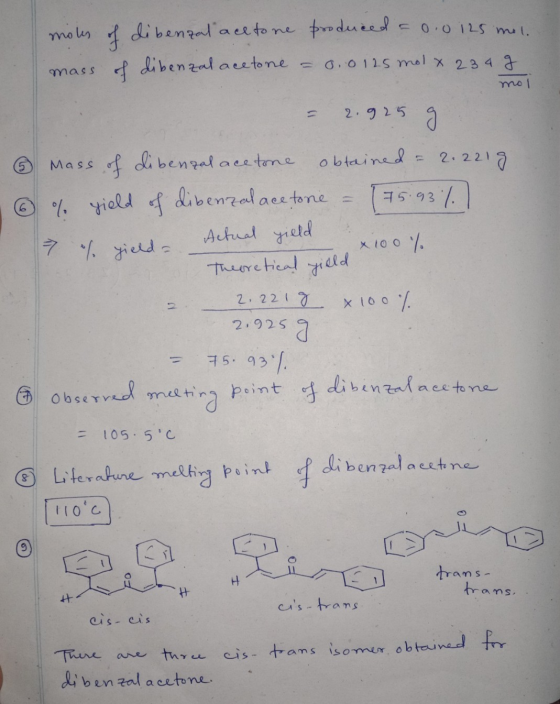 moles of dibenzalacetone produced = 0.0125 mol.
mass of dibenzalacetone = 0.0125 mol x 234 g/mol
= 2.925 g
⑤ Mass of dibenzalacetone obtained = 2.221 g
⑥ % yield of dibenzalacetone = 75.93%
⇒ % yield = Actual yield / Theoretical yield x 100 %
= 2.221 g / 2.925 g x 100 %
= 75.93%
⑦ Observed melting point of dibenzalacetone
= 105.5°C
⑧ Literature melting point of dibenzalacetone
110°C
⑨
O O O
H H H
cis-cis cis-trans trans-trans.
There are three cis-trans isomer obtained for
dibenzalacetone.